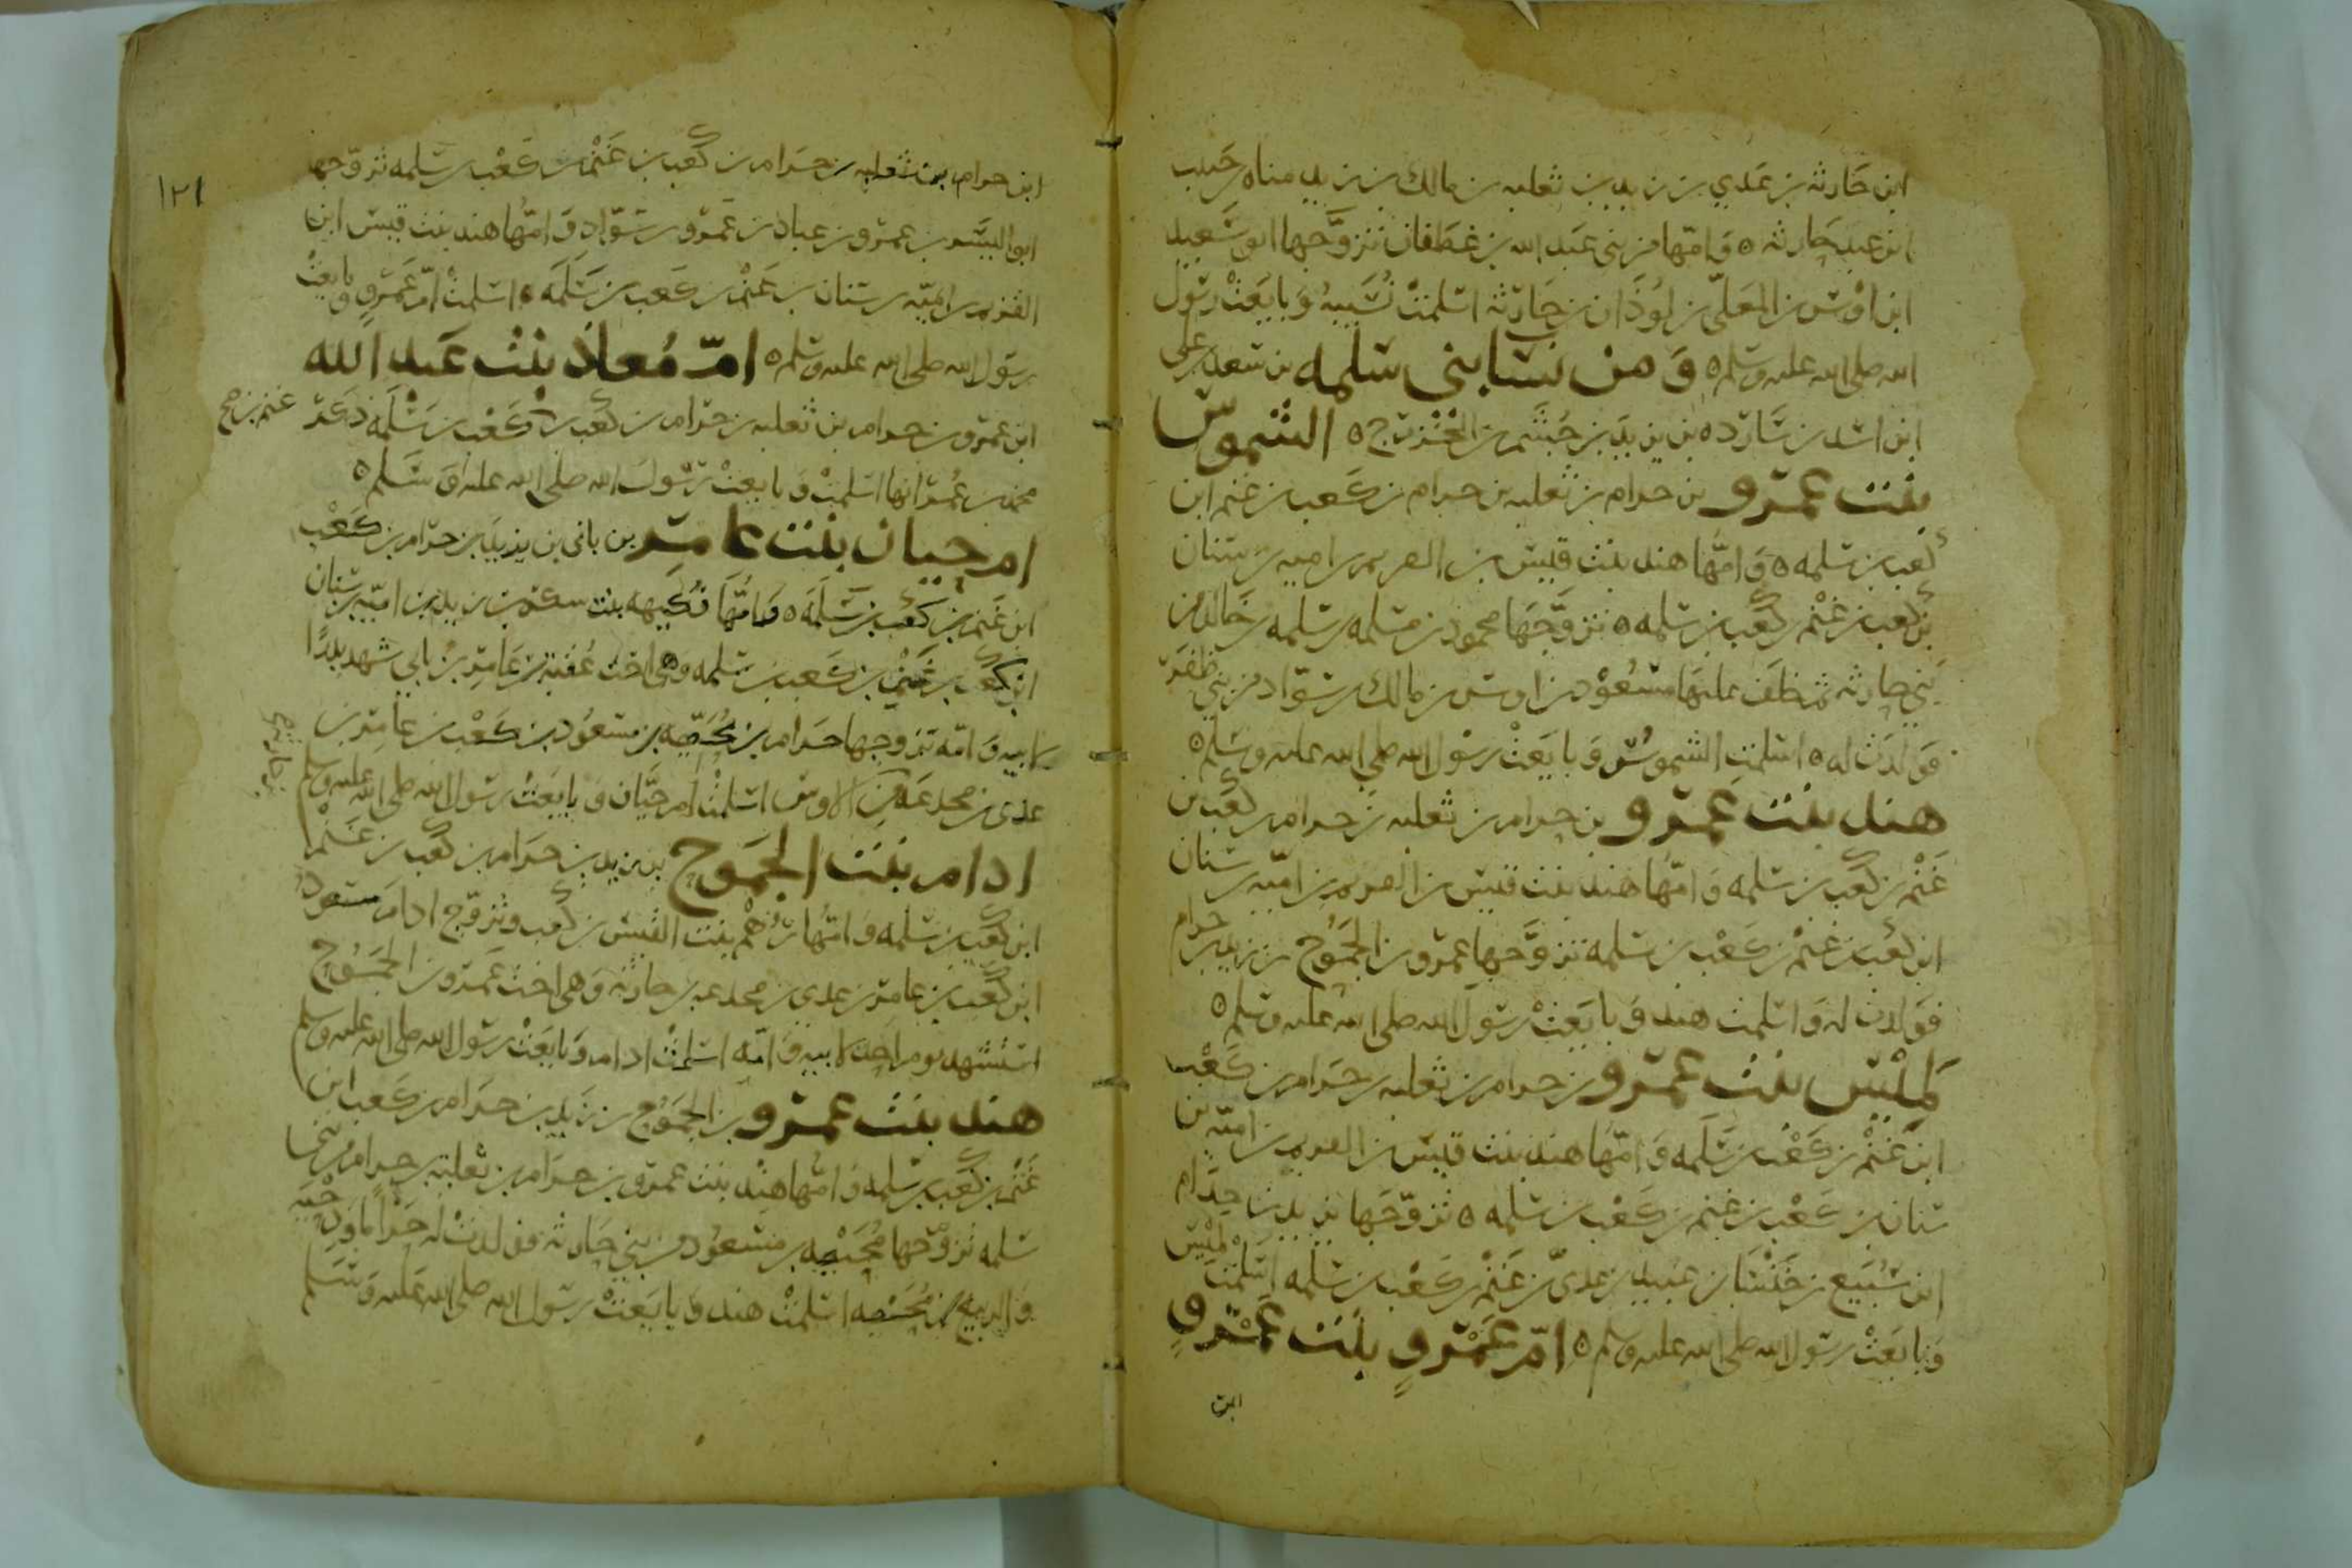 ابن حارثه بن عدي بن زيد بن ثعلبه بن مالك بن زيد مناه بن حبيب
ابن عبد حارثه ٥ وَامّها من بني عبد الله بن غطفان تزوَّجها ابو سَعيد
ابن اوْس بن المعَلّى بن لوْذَان بن حارثه اسْلمتْ نُسَيبهُ وَبايَعَتْ رسُول
الله صلى الله عليه وسَلم ٥ وَمن نسَا بنى سَلمه بن سَعد بن على
ابن اسَد بن سَارده بن يزيد بن جُشَم بن الخزرج ٥ الشموسُ
بنت عمرو بن حرام بن ثعلبه بن حرام بن كعب بن غنم ابن
كعب بن سَلمه ٥ وَامّها هند بنت قيس بن القريم بن اميه بن سنان
بن كعب بن غنْم بن كعب بن سَلمه ٥ تزوَّجَهَا محمود بن مسَلمه بن سَلمه بن خالد من
بني حارثه ثم خلَفَ عليهَا مسْعُوْد بن اوس بن مالك بن سَوَاد من بني ظفَر
فوَلدَت له ٥ اسْلمت الشموسُ وَبايَعَتْ رسُول الله صلى الله عليه وسَلم ٥
هند بنت عَمرو بن حرام بن ثعلبه بن حرام بن كعب بن
غَنْم بن كعب بن سَلمه وَامّهَا هند بنت قيس بن القريم بن اميّه بن سنان
ابن كعب بن غنْم بن كعْب بن سَلمه تزوَّجها عمرو بن الجَمُوْح بن زيد بن حرام
فوَلدت له وَاسْلمت هند وَبايَعَتْ رسُولَ الله صلى الله عليه وسَلم ٥
لميْسُ بنت عمرو بن حرام بن ثعلبه بن حَرام بن كَعْب
ابن غَنْم بن كَعْب بن سَلَمه وَامّهَا هند بنت قيس بن القريم بن اميّه بن
سنان بن كَعْب بن غنم بن كَعْب بن سَلمه ٥ تزوَّجَها يزيد بن حرام
ابن سُبَيع بن خنْسَا بن عبيد بن عدىّ بن غَنْم بن كَعْب بن سَلمه اسْلمتْ لميْس
وَبايَعَتْ رسُول الله صلى الله عليه وسلم ٥ امّ عَمْرو بنت عَمْرو
ابن
١٢١
ابن حرام بن ثعلبه بن حَرام بن كعب بن غَنْم بن كَعْب بن سَلمه تزوّجها
ابو اليَسَر بن عمرو بن عباد بن عَمرو بن سَوَاد وَامّهَا هند بنت قيس ابن
القريم بن اميّه بن سنان بن غَنْم بن كَعب بن سَلَمَه ٥ اسْلمتْ امّ عَمْرو وبايعتْ
رسُول الله صلى الله عليه وسَلم ٥ امّ مُعاذ بنْت عَبد الله
ابن عمرو بن حرام بن ثعلبه بن حرام بن كعب بن غنم بن كَعْب بن سَلمه ذكَر
محمد بن عُمَر انها اسْلمتْ وَبايعتْ رسُولَ الله صلى الله عليه وَسَلم ٥
ام حيان بنت عامر بن نابى بن زيد بن حرام بن كعْب
ابن غَنم بن كعْب بن سَلَمَه ٥ وَامّهَا فُكَيهه بنت سكن بن زيد بن اميّه بن سنان
ابن كعْب بن غَنْم بن كَعب بن سَلمه وهى اخت عُقبَة بن عَامر بن نابي شهد بدْرًا
لابيه وَامّه تزوجها حَرام بن مُحَيّصه بن مسعُود بن كعْب بن عامر بن
عدى بن مجدعَه من الاوس اسْلمتْ ام حيَّان وَبايَعَتْ رسُول الله صلى الله عليه وسلم
ادام بنت الجَمُوح بن زيد بن حرَام بن كعب بن غَنْم
ابن كعب بن سَلمه وَامّها رُهْم بنت القيس بن كعب وتزوَّج ادام مسْعود
ابن كعْب بن عامر بن عدى بن مجدعه بن حارثه وَهى اخت عَمرو بن الجَمُوح
اسْتشهد يوم احد لابيه وَامّه اسْلمتْ ادام وَبايَعَتْ رسُول الله صلى الله عليه وسلم
هند بنت عمرو بن الجَمُوْح بن زيد بن حرَام بن كَعب ابن
غَنْم بن كَعْب بن سَلمه وَامّها هنْد بنت عمرو بن حرَام بن ثعلبة بن حرام من بنى
سَلمه تزوَّجها مُحَيّصه بن مسْعُود من بني حَارثه فوَلدتْ له حَرَاماً وَدحيَه
وَالربيع بن مُحَيّصه اسْلمتْ هند وَبايَعَتْ رسُول الله صلى الله عليه وَسَلم